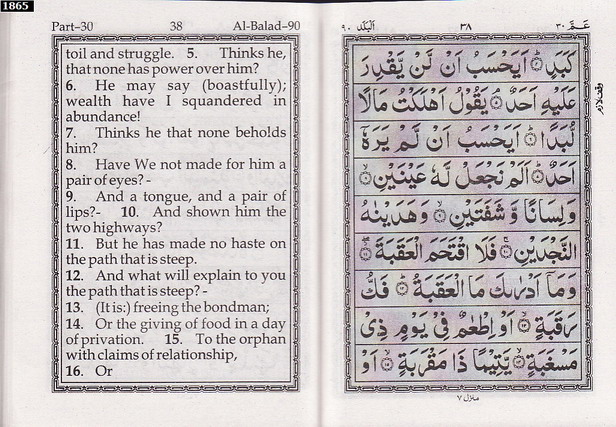 1865
Part-30 38 Al-Balad-90
toil and struggle. 5. Thinks he,
that none has power over him?
6. He may say (boastfully);
wealth have I squandered in
abundance!
7. Thinks he that none beholds
him?
8. Have We not made for him a
pair of eyes? -
9. And a tongue, and a pair of
lips?- 10. And shown him the
two highways?
11. But he has made no haste on
the path that is steep.
12. And what will explain to you
the path that is steep? -
13. (It is:) freeing the bondman;
14. Or the giving of food in a day
of privation. 15. To the orphan
with claims of relationship,
16. Or
عَمَّ ٣٠ ٣٨ اَلْبَلَد ٩٠
كَبَدٍ ۝ اَيَحْسَبُ اَنْ لَّنْ يَّقْدِرَ
عَلَيْهِ اَحَدٌ ۝ يَقُوْلُ اَهْلَكْتُ مَالًا
لُّبَدًا ۝ اَيَحْسَبُ اَنْ لَّمْ يَرَهٗ
اَحَدٌ ۝ اَلَمْ نَجْعَلْ لَّهٗ عَيْنَيْنِ ۝
وَلِسَانًا وَّشَفَتَيْنِ ۝ وَهَدَيْنٰهُ
النَّجْدَيْنِ ۝ فَلَا اقْتَحَمَ الْعَقَبَةَ ۝
وَمَآ اَدْرٰىكَ مَا الْعَقَبَةُ ۝ فَكُّ
رَقَبَةٍ ۝ اَوْ اِطْعٰمٌ فِيْ يَوْمٍ ذِيْ
مَسْغَبَةٍ ۝ يَّتِيْمًا ذَا مَقْرَبَةٍ ۝ اَوْ
وقف لازم
منزل ٧